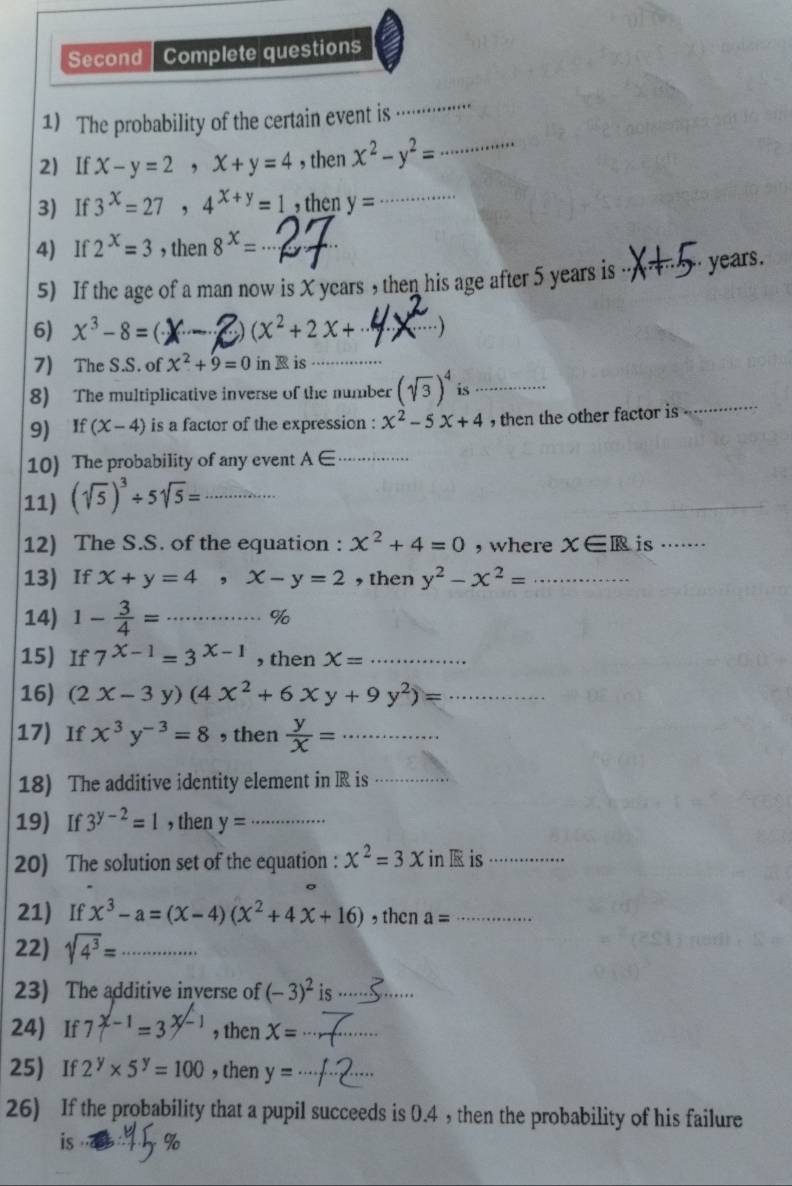 Second Complete questions
1) The probability of the certain event is ...............
2) If x − y = 2 , x + y = 4 , then x² − y² = ...............
3) If 3ˣ = 27 , 4ˣ⁺ʸ = 1 , then y = ...............
4) If 2ˣ = 3 , then 8ˣ = ... 27 ...
5) If the age of a man now is X years , then his age after 5 years is ... X + 5 ... years.
6) x³ − 8 = (... X − 2 ...) (x² + 2 x + ... 4X² ...)
7) The S.S. of x² + 9 = 0 in ℝ is ...............
8) The multiplicative inverse of the number (√3)⁴ is ...............
9) If (x − 4) is a factor of the expression : x² − 5 x + 4 , then the other factor is ...............
10) The probability of any event A ∈ ...............
11) (√5)³ ÷ 5√5 = ...............
12) The S.S. of the equation : x² + 4 = 0 , where x ∈ ℝ is .......
13) If x + y = 4 , x − y = 2 , then y² − x² = ...............
14) 1 − 3/4 = ............... %
15) If 7ˣ⁻¹ = 3ˣ⁻¹ , then x = ...............
16) (2 x − 3 y) (4 x² + 6 x y + 9 y²) = ...............
17) If x³ y⁻³ = 8 , then y/x = ...............
18) The additive identity element in ℝ is ...............
19) If 3ʸ⁻² = 1 , then y = ...............
20) The solution set of the equation : x² = 3 x in ℝ is ...............
21) If x³ − a = (x − 4) (x² + 4 x + 16) , then a = ...............
22) √4³ = ...............
23) The additive inverse of (− 3)² is ... 3 ...
24) If 7ˣ⁻¹ = 3ˣ⁻¹ , then x = ... 7 ...
25) If 2ʸ × 5ʸ = 100 , then y = ... 12 ...
26) If the probability that a pupil succeeds is 0.4 , then the probability of his failure
is ... 45 %